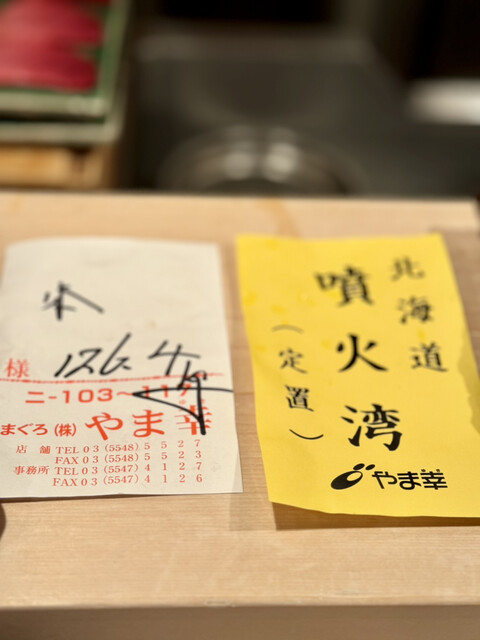 様 126.4
ニ-103～11
まぐろ(株) やま幸
店舗 TEL 03 (5548) 5527
FAX 03 (5548) 5523
事務所 TEL 03 (5547) 4127
FAX 03 (5547) 4126
北海道
噴火湾
(定置)
やま幸